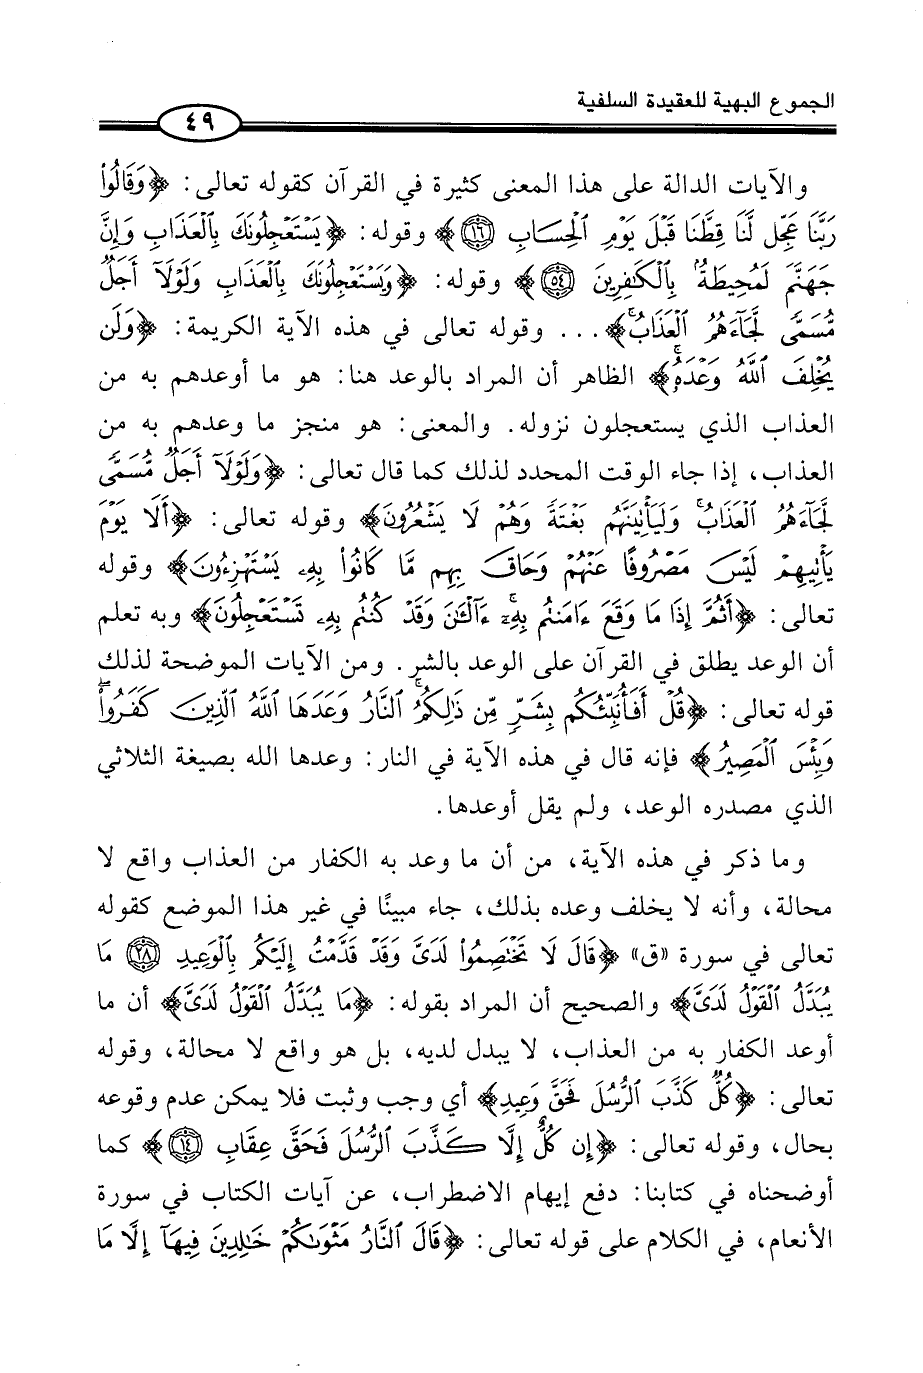 الجموع البهية للعقيدة السلفية
٤٩
والآيات الدالة على هذا المعنى كثيرة في القرآن كقوله تعالى: ﴿وَقَالُواْ
رَبَّنَا عَجِّل لَّنَا قِطَّنَا قَبْلَ يَوْمِ ٱلْحِسَابِ ١٦﴾ وقوله: ﴿يَسْتَعْجِلُونَكَ بِٱلْعَذَابِ وَإِنَّ
جَهَنَّمَ لَمُحِيطَةٌۢ بِٱلْكَٰفِرِينَ ٥٤﴾ وقوله: ﴿وَيَسْتَعْجِلُونَكَ بِٱلْعَذَابِ وَلَوْلَآ أَجَلٌ
مُّسَمًّى لَّجَآءَهُمُ ٱلْعَذَابُۚ﴾... وقوله تعالى في هذه الآية الكريمة: ﴿وَلَن
يُخْلِفَ ٱللَّهُ وَعْدَهُۥۚ﴾ الظاهر أن المراد بالوعد هنا: هو ما أوعدهم به من
العذاب الذي يستعجلون نزوله. والمعنى: هو منجز ما وعدهم به من
العذاب، إذا جاء الوقت المحدد لذلك كما قال تعالى: ﴿وَلَوْلَآ أَجَلٌ مُّسَمًّى
لَّجَآءَهُمُ ٱلْعَذَابُۚ وَلَيَأْتِيَنَّهُم بَغْتَةً وَهُمْ لَا يَشْعُرُونَ﴾ وقوله تعالى: ﴿أَلَا يَوْمَ
يَأْتِيهِمْ لَيْسَ مَصْرُوفًا عَنْهُمْ وَحَاقَ بِهِم مَّا كَانُواْ بِهِۦ يَسْتَهْزِءُونَ﴾ وقوله
تعالى: ﴿أَثُمَّ إِذَا مَا وَقَعَ ءَامَنتُم بِهِۦٓۚ ءَآلْـَٰٔنَ وَقَدْ كُنتُم بِهِۦ تَسْتَعْجِلُونَ﴾ وبه تعلم
أن الوعد يطلق في القرآن على الوعد بالشر. ومن الآيات الموضحة لذلك
قوله تعالى: ﴿قُلْ أَفَأُنَبِّئُكُم بِشَرٍّ مِّن ذَٰلِكُمُۚ ٱلنَّارُ وَعَدَهَا ٱللَّهُ ٱلَّذِينَ كَفَرُواْۖ
وَبِئْسَ ٱلْمَصِيرُ﴾ فإنه قال في هذه الآية في النار: وعدها الله بصيغة الثلاثي
الذي مصدره الوعد، ولم يقل أوعدها.
وما ذكر في هذه الآية، من أن ما وعد به الكفار من العذاب واقع لا
محالة، وأنه لا يخلف وعده بذلك، جاء مبينًا في غير هذا الموضع كقوله
تعالى في سورة «ق» ﴿قَالَ لَا تَخْتَصِمُواْ لَدَيَّ وَقَدْ قَدَّمْتُ إِلَيْكُم بِٱلْوَعِيدِ ٢٨ مَا
يُبَدَّلُ ٱلْقَوْلُ لَدَيَّ﴾ والصحيح أن المراد بقوله: ﴿مَا يُبَدَّلُ ٱلْقَوْلُ لَدَيَّ﴾ أن ما
أوعد الكفار به من العذاب، لا يبدل لديه، بل هو واقع لا محالة، وقوله
تعالى: ﴿كُلٌّ كَذَّبَ ٱلرُّسُلَ فَحَقَّ وَعِيدِ﴾ أي وجب وثبت فلا يمكن عدم وقوعه
بحال، وقوله تعالى: ﴿إِن كُلٌّ إِلَّا كَذَّبَ ٱلرُّسُلَ فَحَقَّ عِقَابِ ١٤﴾ كما
أوضحناه في كتابنا: دفع إيهام الاضطراب، عن آيات الكتاب في سورة
الأنعام، في الكلام على قوله تعالى: ﴿قَالَ ٱلنَّارُ مَثْوَىٰكُمْ خَٰلِدِينَ فِيهَآ إِلَّا مَا